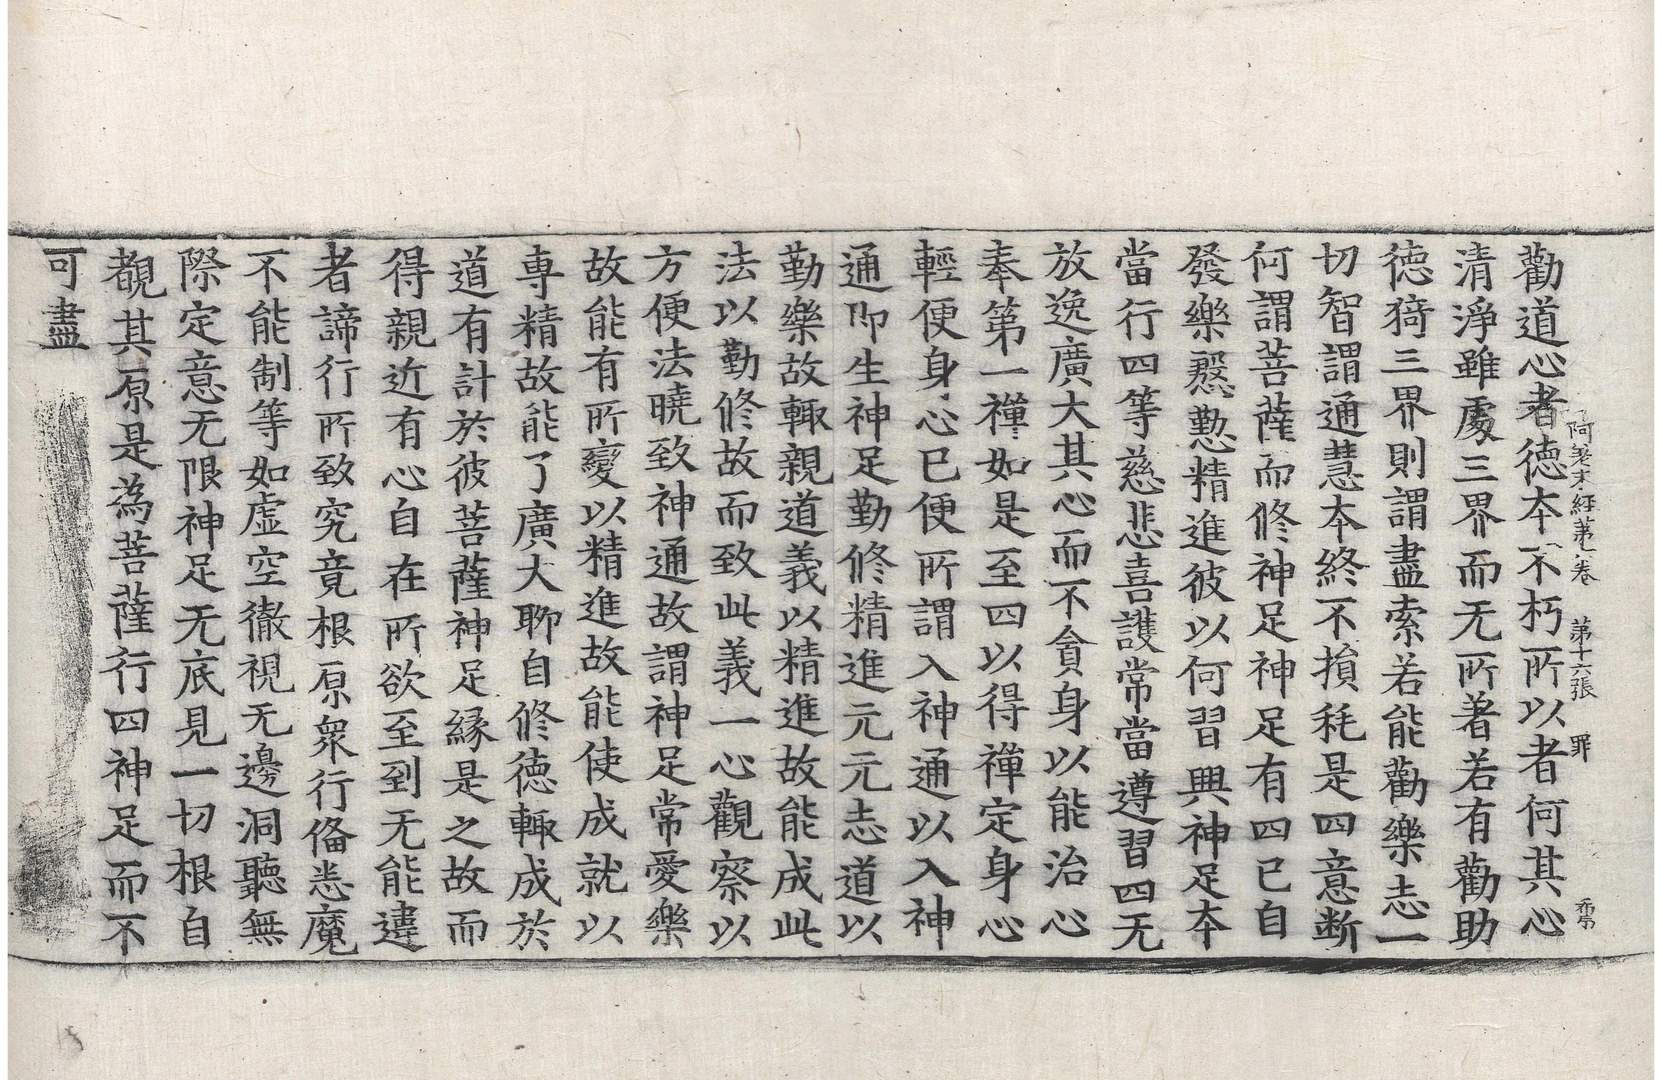 阿差末經第七卷　第十六張　罪
勸道心者德本不朽所以者何其心
清淨雖處三界而无所著若有勸助
德猗三界則謂盡索若能勸樂志一
切智謂通慧本終不損耗是四意断
何謂菩薩而修神足神足有四已自
發樂慇懃精進彼以何習興神足本
當行四等慈悲喜護常當遵習四无
放逸廣大其心而不貪身以能治心
奉第一禪如是至四以得禪定身心
輕便身心已便所謂入神通以入神
通即生神足勤修精進元元志道以
勤樂故輙親道義以精進故能成此
法以勤修故而致此義一心觀察以
方便法曉致神通故謂神足常愛樂
故能有所變以精進故能使成就以
専精故能了廣大聊自修德輙成於
道有計於彼菩薩神足縁是之故而
得親近有心自在所欲至到无能違
者諦行所致究竟根原衆行俻悉魔
不能制等如虚空徹視无邊洞聽無
際定意无限神足无底見一切根自
覩其原是為菩薩行四神足而不
可盡